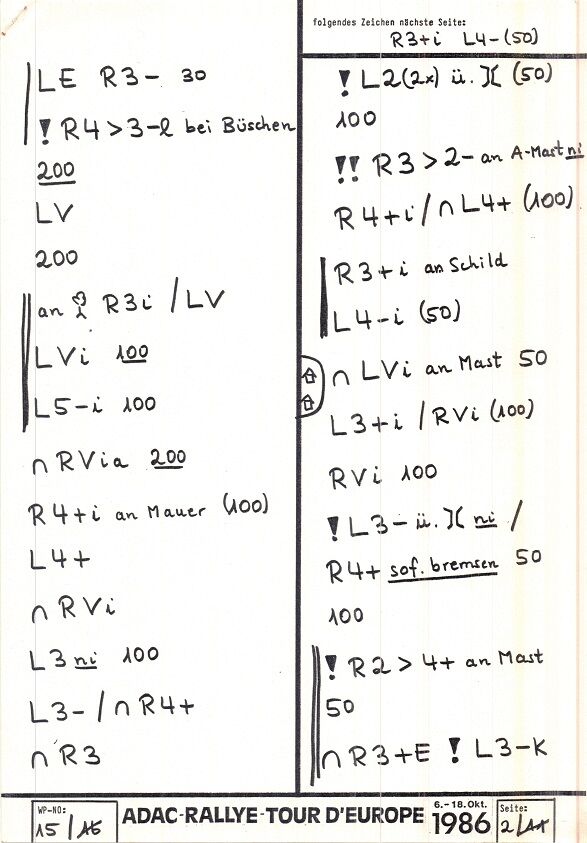 folgendes Zeichen nächste Seite:
R3+i L4-(50)
LE R3- 30
! R4>3-l bei Büschen
200
LV
200
an R3i /LV
LVi 100
L5-i 100
∩ RVia 200
R4+i an Mauer (100)
L4+
∩ RVi
L3 ni 100
L3-/∩ R4+
∩ R3
! L2(2x) ü. )( (50)
100
!! R3>2- an A-Mast ni
R4+i/∩ L4+ (100)
R3+i an Schild
L4-i (50)
∩ LVi an Mast 50
L3+i /RVi (100)
RVi 100
! L3- ü. )( ni /
R4+ sof. bremsen 50
100
! R2 > 4+ an Mast
50
∩ R3+E ! L3-K
WP-NO:
15/15
ADAC-RALLYE-TOUR D'EUROPE
6.-18.Okt.
1986
Seite:
2/11